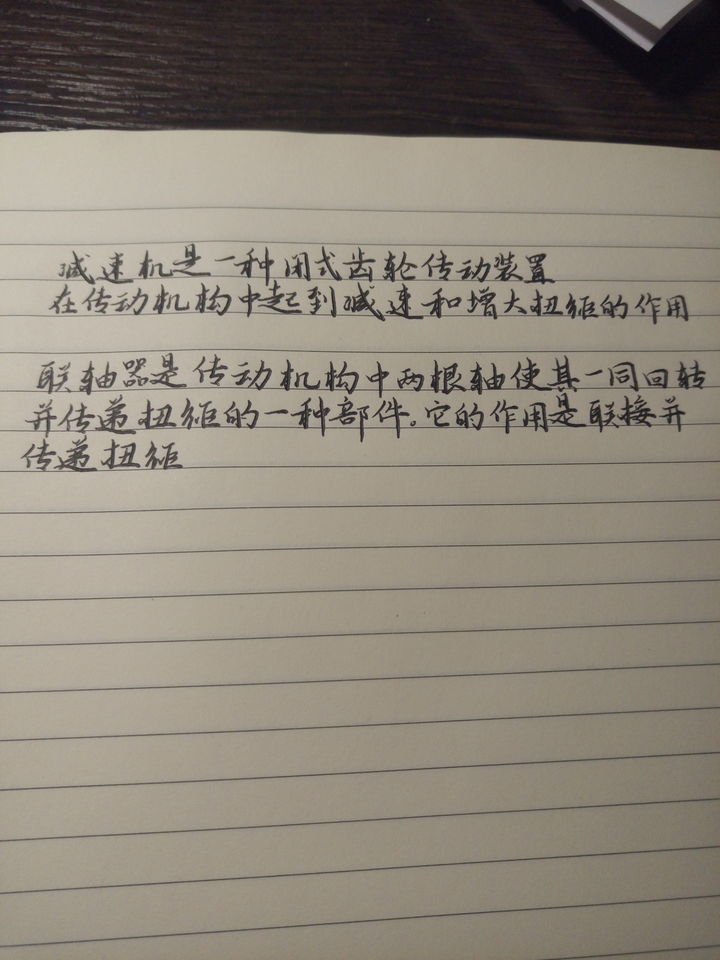 减速机是一种闭式齿轮传动装置
在传动机构中起到减速和增大扭矩的作用
联轴器是传动机构中两根轴使其一同回转
并传递扭矩的一种部件。它的作用是联接并
传递扭矩